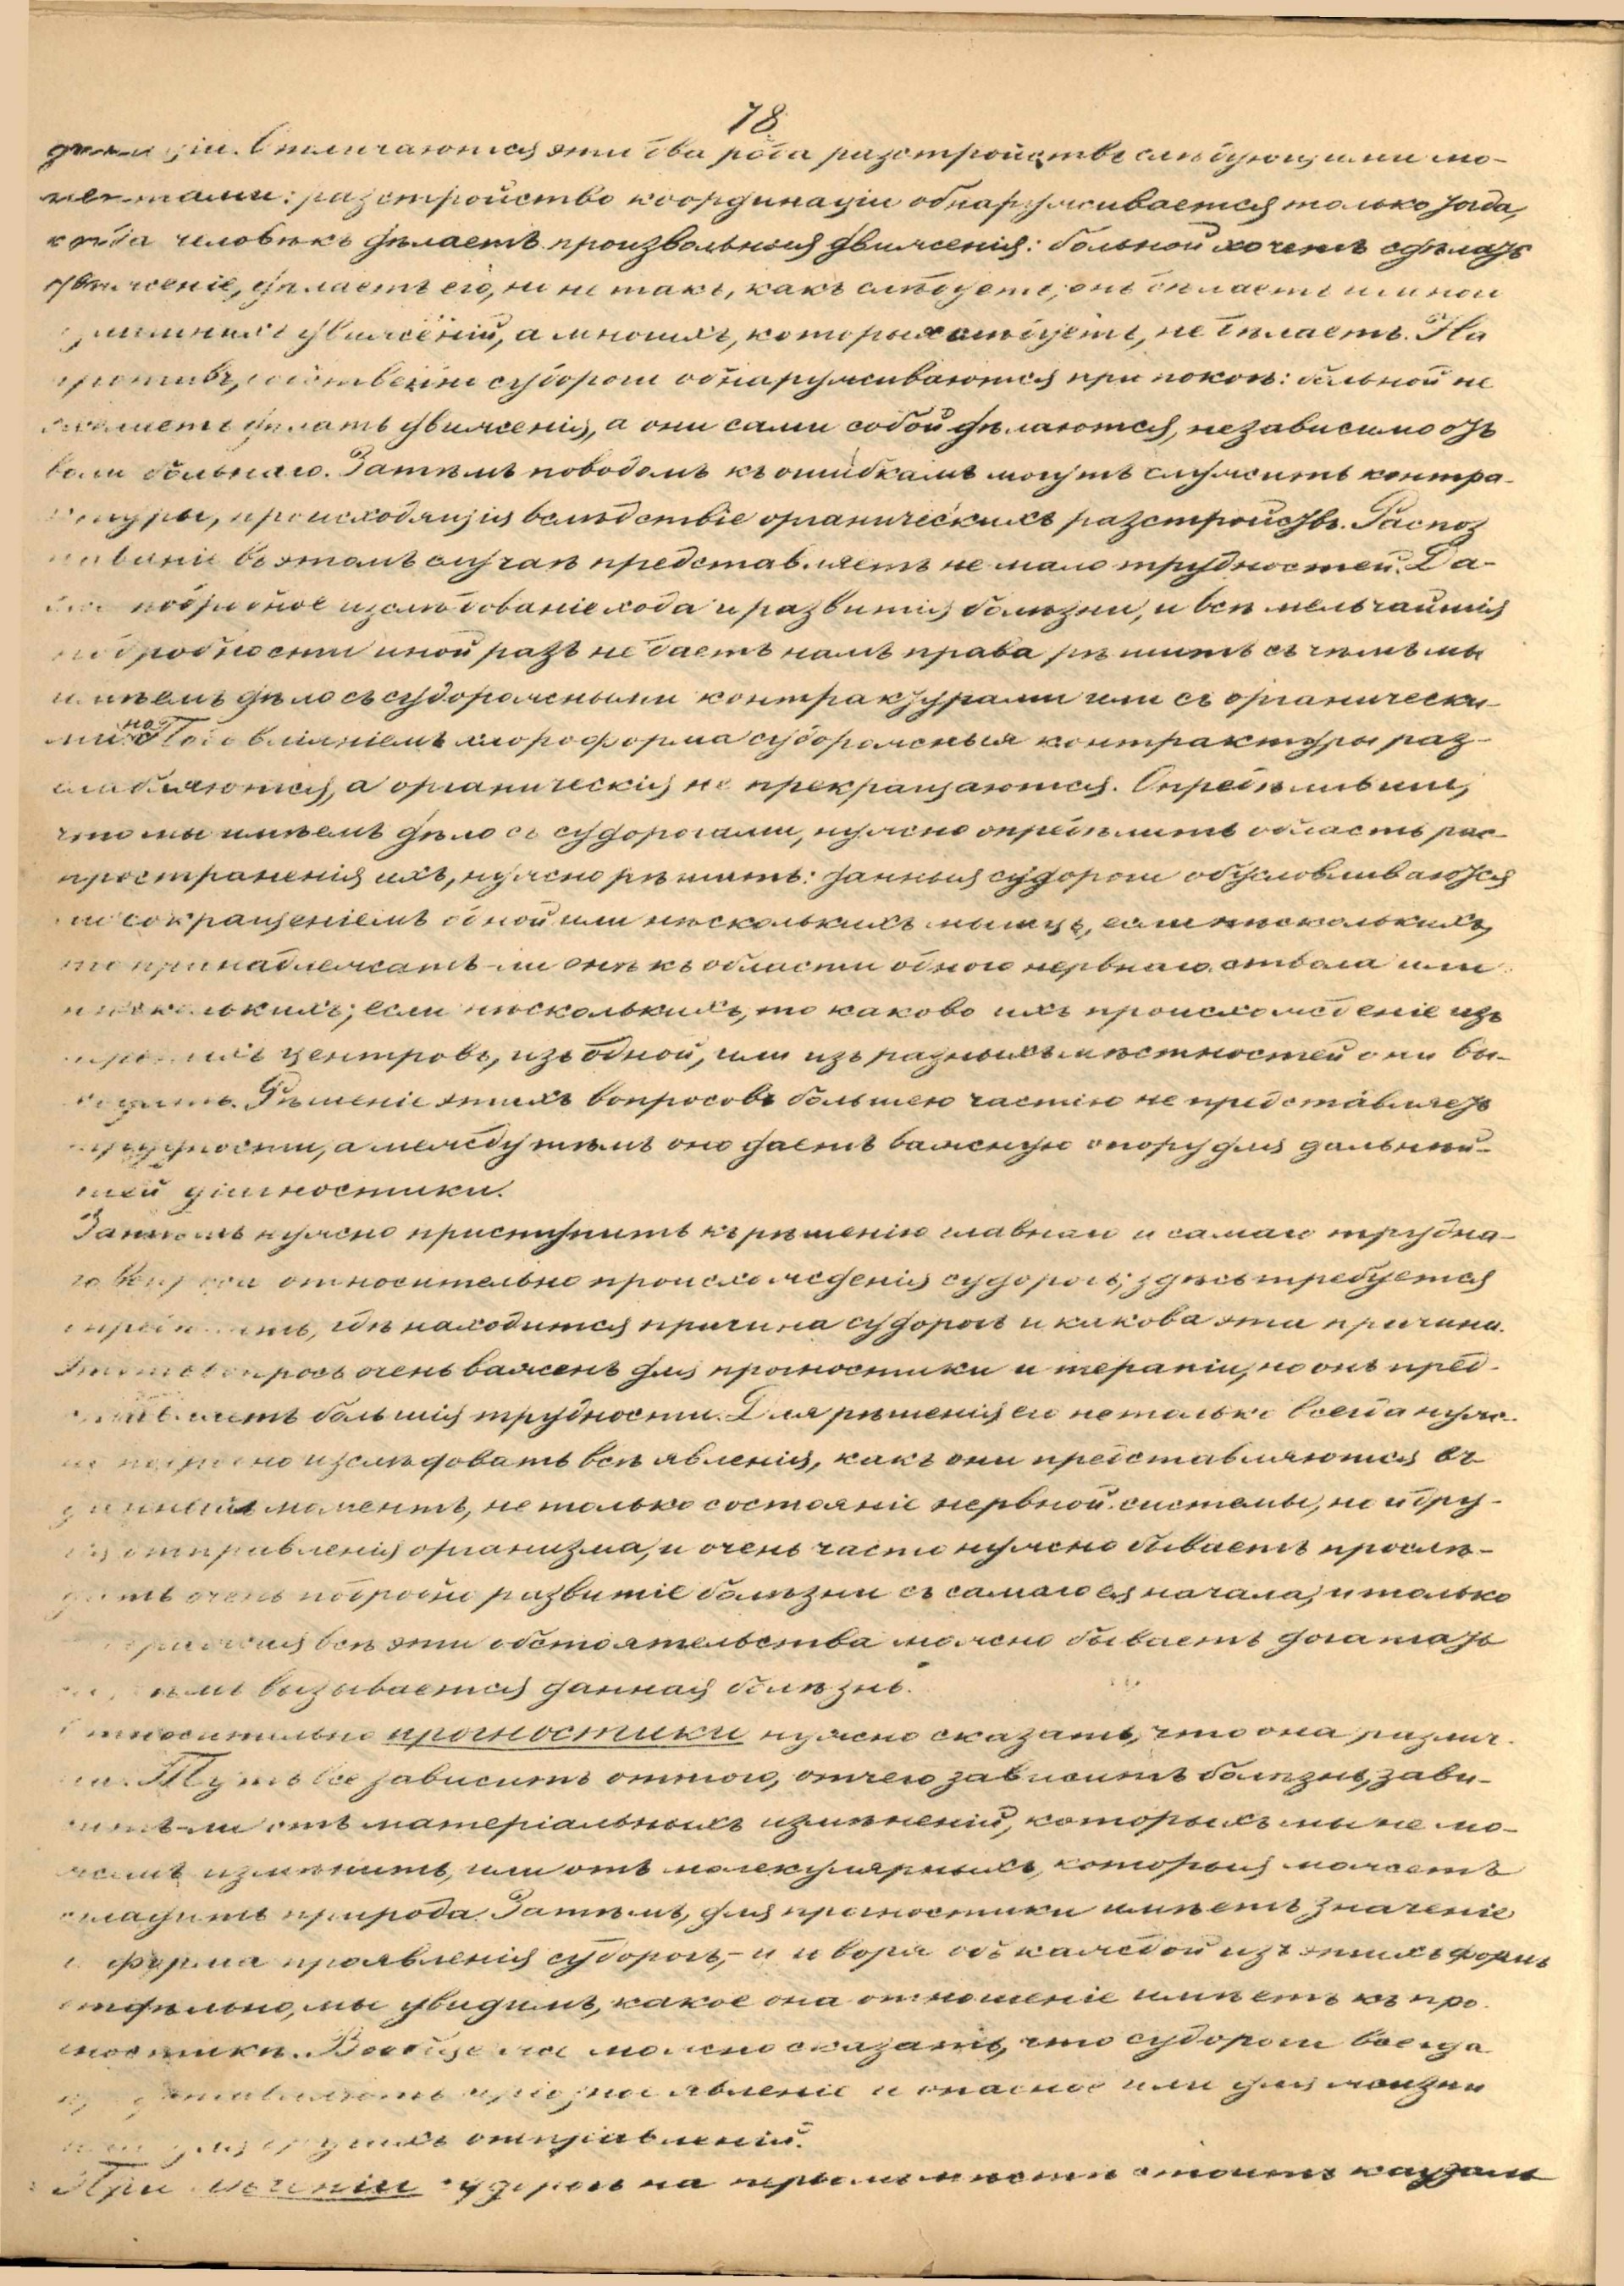 78
Отличаются эти два рода разстройствъ слѣдующими мо-
ментами: разстройство координаціи обнаруживается только тогда,
когда человѣкъ дѣлаетъ произвольныя движенія: больной хочетъ сдѣлать
движеніе, дѣлаетъ его, но не такъ, какъ слѣдуетъ, онъ дѣлаетъ много
движеній, а многихъ, которыя слѣдуетъ, не дѣлаетъ. На
противъ, собственно судороги обнаруживаются при покоѣ: больной не
желаетъ дѣлать движенія, а они сами собой дѣлаются, независимо отъ
воли больнаго. Затѣмъ поводомъ къ ошибкамъ могутъ служить контра-
ктуры, происходящія вслѣдствіе органическихъ разстройствъ. Распоз
наваніе въ этомъ случаѣ представляетъ не мало трудностей. Да-
же подробное изслѣдованіе хода и развитія болѣзни, и всѣ мельчайшія
подробности иной разъ не даетъ намъ права рѣшить съ чѣмъ мы
имѣемъ дѣло съ судорожными контрактурами или съ органически-
ми. Но Подъ вліяніемъ хлороформа судорожныя контрактуры раз-
слабляются, а органическія не прекращаются. Опредѣливши,
что мы имѣемъ дѣло съ судорогами, нужно опредѣлить область рас-
пространенія ихъ, нужно рѣшить: данныя судороги обусловливаются
ли сокращеніемъ одной или нѣсколькихъ мышцъ, если нѣсколькихъ,
то принадлежатъ-ли онѣ къ области одного нервнаго ствола или
нѣсколькихъ; если нѣсколькихъ, то каково ихъ происхожденіе изъ
нервныхъ центровъ, изъ одной, или изъ разныхъ мѣстностей они вы-
ходятъ. Рѣшеніе этихъ вопросовъ большею частію не представляетъ
трудности, а между тѣмъ оно даетъ важную опору для дальнѣй-
шей діагностики.
Затѣмъ нужно приступить къ рѣшенію главнаго и самаго трудна-
го вопроса относительно происхожденія судорогъ; здѣсь требуется
опредѣлить, гдѣ находится причина судорогъ и какова эта причина.
Этотъ вопросъ очень важенъ для прогностики и терапіи, но онъ пред-
ставляетъ большія трудности. Для рѣшенія его не только всегда нуж-
но подробно изслѣдовать всѣ явленія, какъ они представляются въ
данный моментъ, не только состояніе нервной системы, но и дру-
гія отправленія организма, и очень часто нужно бываетъ прослѣ-
дить очень подробно развитіе болѣзни съ самаго ея начала, и только
всѣ эти обстоятельства можно бываетъ догадать
ся, чѣмъ вызывается данная болѣзнь.
Относительно прогностики нужно сказать, что она различ-
на. Тутъ все зависитъ оттого, отчего зависитъ болѣзнь, зави-
ситъ-ли отъ матеріальныхъ измѣненій, которыхъ мы не мо-
жемъ измѣнить, или отъ молекулярныхъ, которыя можетъ
сладить природа. Затѣмъ, для прогностики имѣетъ значеніе
и форма проявленія судорогъ, – и говоря объ каждой изъ этихъ формъ
отдѣльно, мы увидимъ, какое она отношеніе имѣетъ къ про-
гностики. Вообще же можно сказать, что судороги всегда
представляютъ грозное явленіе и опасное или для жизни
или для другихъ отправленій.
При леченіи судорогъ на первомъ мѣстѣ стоитъ